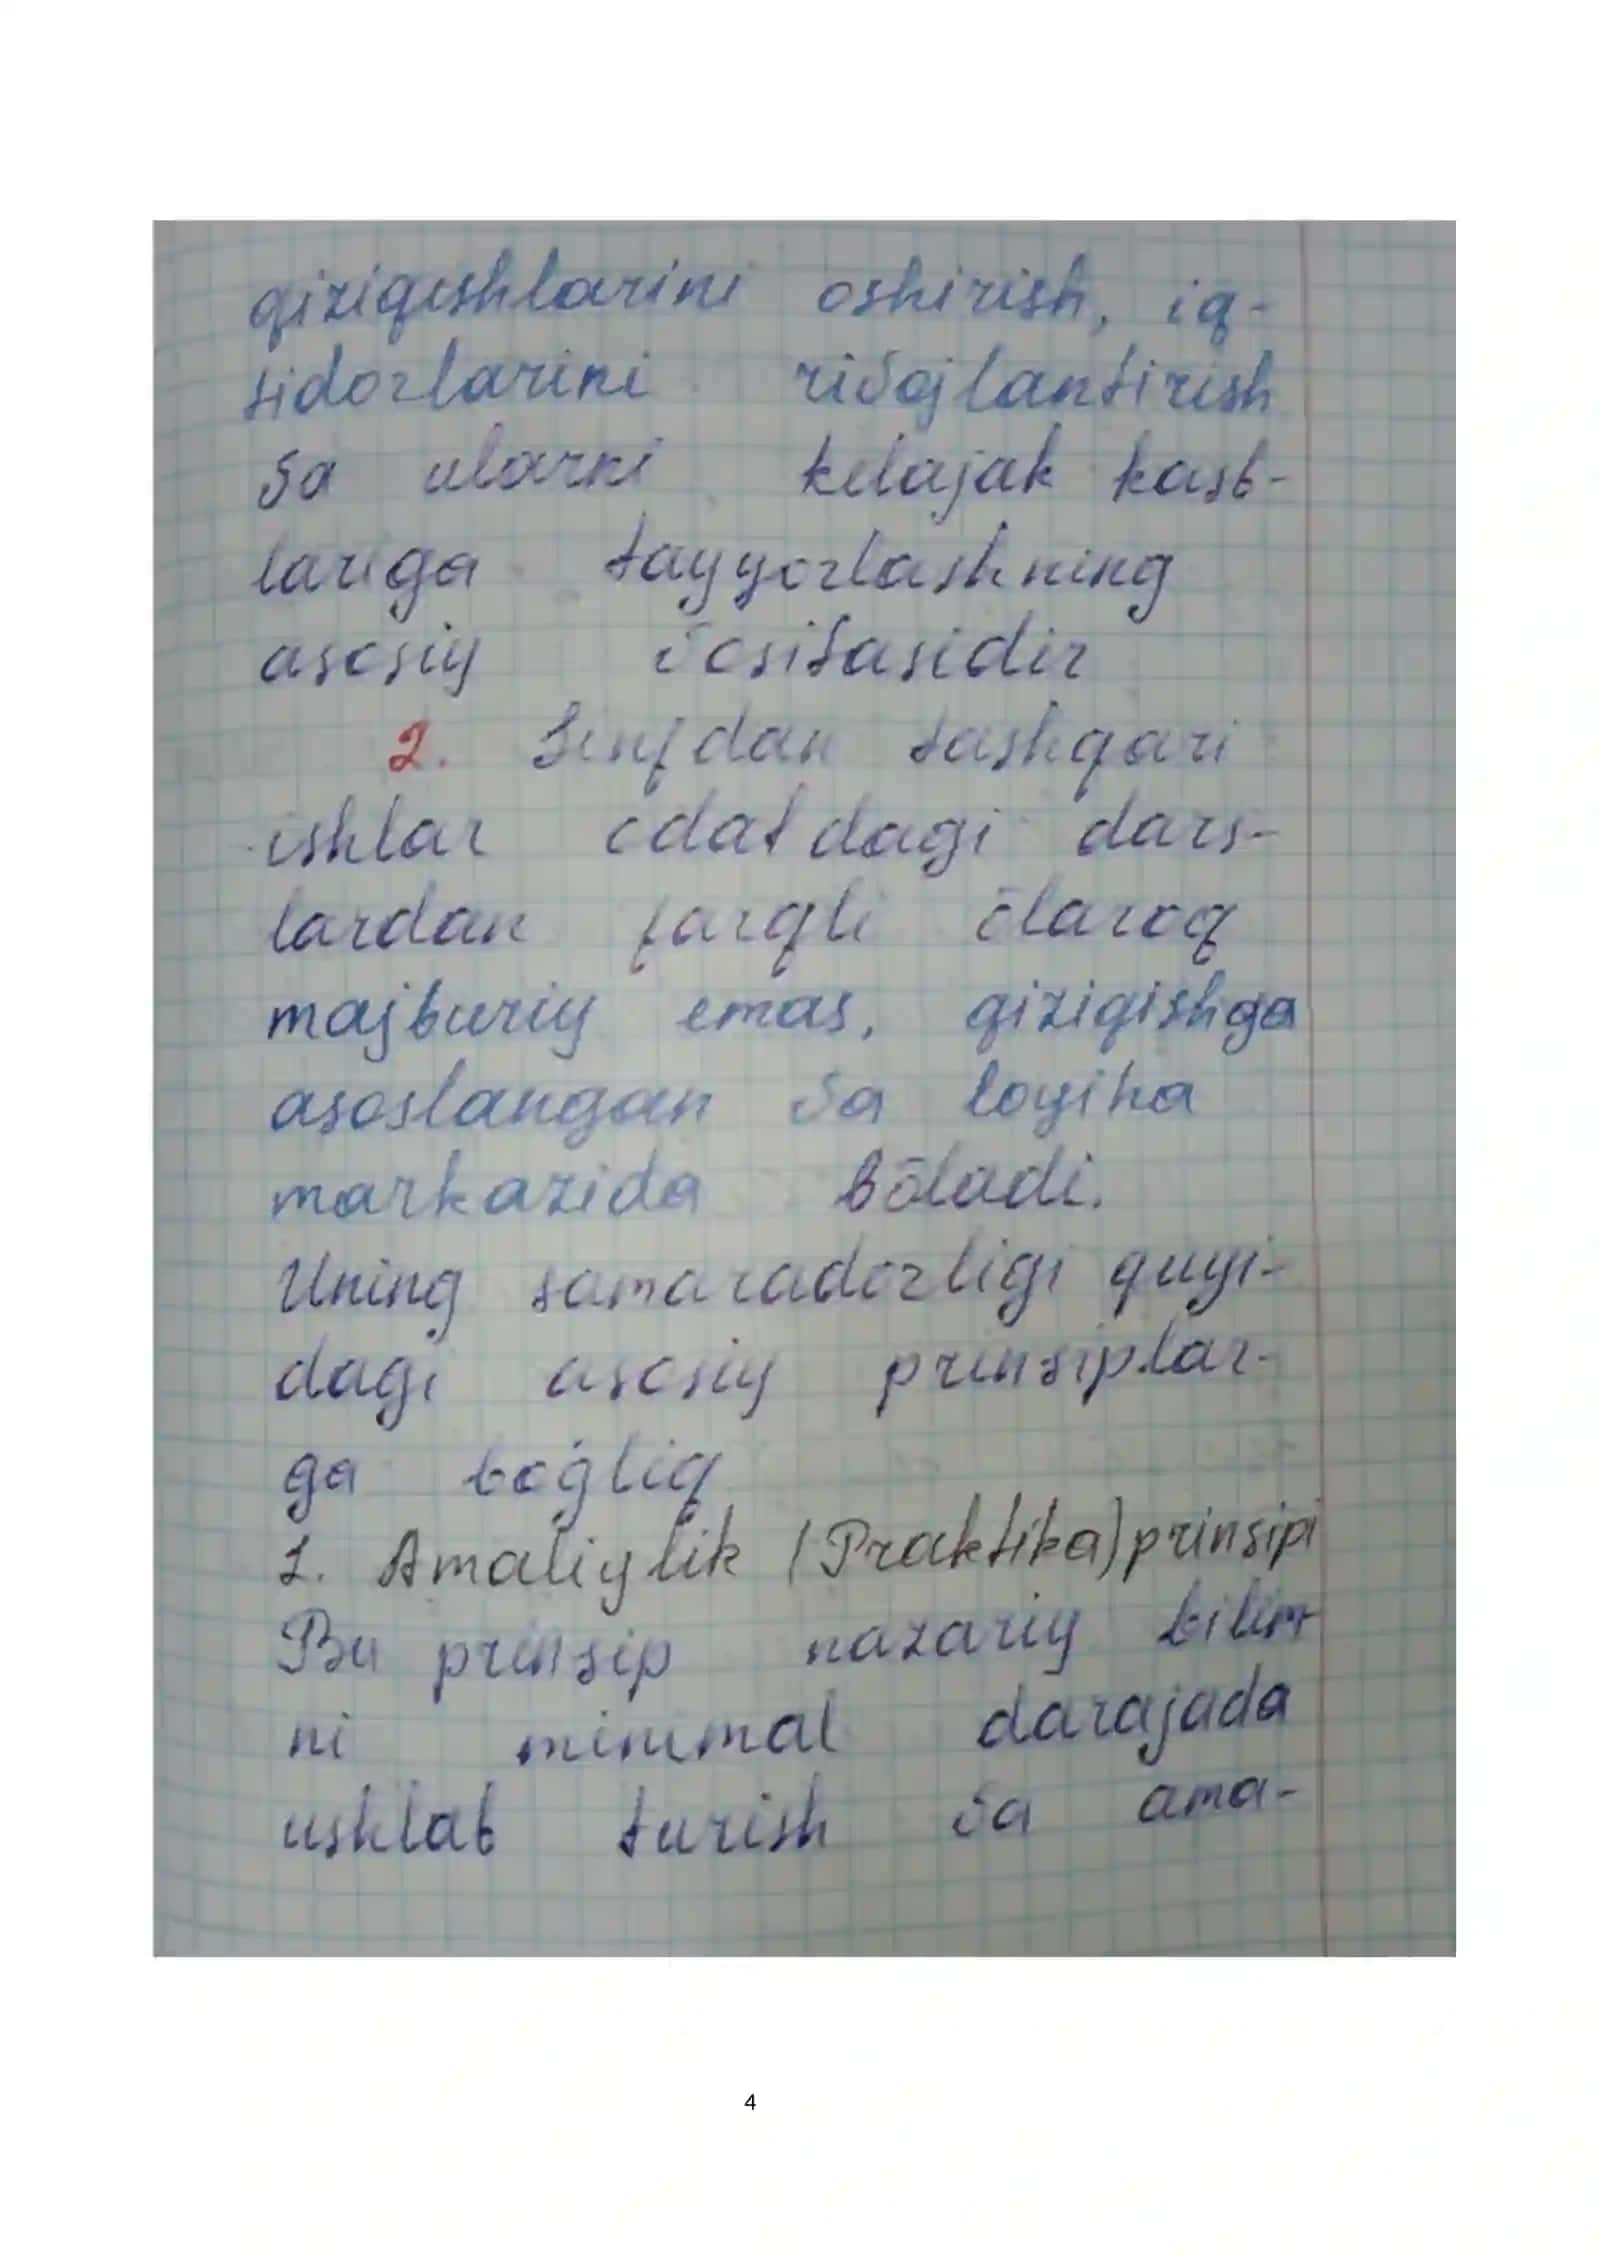 qiziqishlarini oshirish, iq-
tidorlarini rivojlantirish
va ularni kelajak kasb-
lariga tayyorlashning
asosiy vositasidir
2. Sinfdan tashqari
ishlar odatdagi dars-
lardan farqli ōlaroq
majburiy emas, qiziqishga
asoslangan va loyiha
markazida bōladi.
Uning samaradorligi quyi-
dagi asosiy prinsiplar-
ga boģliq
1. Amaliylik (Praktika) prinsipi
Bu prinsip nazariy bilim-
ni minimal darajada
ushlab turish va ama-
4